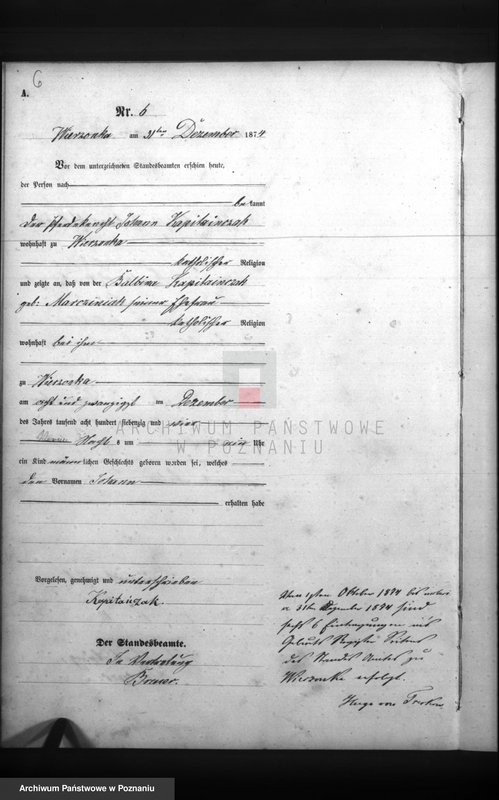 6
A.
Nr. 6
Wierzonka am 31ten Dezember 1874
Vor dem unterzeichneten Standesbeamten erschien heute,
der Person nach
be kannt
der Pferdeknecht Johann Kapitainczak
wohnhaft zu Wierzonka
katholischer Religion
und zeigte an, daß von der Balbine Kapitainczak
geb: Marciniak seiner Ehefrau
katholischer Religion
wohnhaft bei ihm
zu Wierzonka
am acht und zwanzigst en Dezember
des Jahres tausend acht hundert siebenzig und vier
Nacht s um Uhr
ein Kind männlichen Geschlechts geboren worden sei, welches
den Vornamen Johann
erhalten habe
Vorgelesen, genehmigt und unterschrieben
Kapitańczak.
Der Standesbeamte.
In Vertretung
Vom Oktober 1874 bis
31ten Dezember 1874 sind
sechs 6 Eintragungen
Geburts Register Seitens
des Standes Amtes zu
Wierzonka erfolgt.
Hugo von
ARCHIWUM PAŃSTWOWE
W POZNANIU
Archiwum Państwowe w Poznaniu
Archiwum Państwowe w Poznaniu